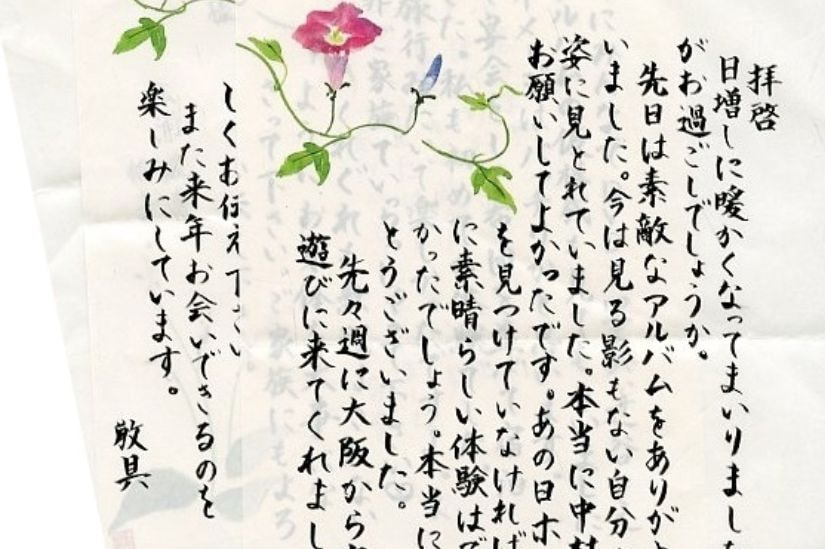 拝啓
日増しに暖かくなってまいりました
がお過ごしでしょうか。
先日は素敵なアルバムをありが
いました。今は見る影もない自分
姿に見とれていました。本当に中村
お願いしてよかったです。あの日ホ
を見つけていなければ
に素晴らしい体験はで
かったでしょう。本当に
とうございました。
先々週に大阪から
遊びに来てくれまし
しくお伝え下さい
また来年お会いできるのを
楽しみにしています。
敬具